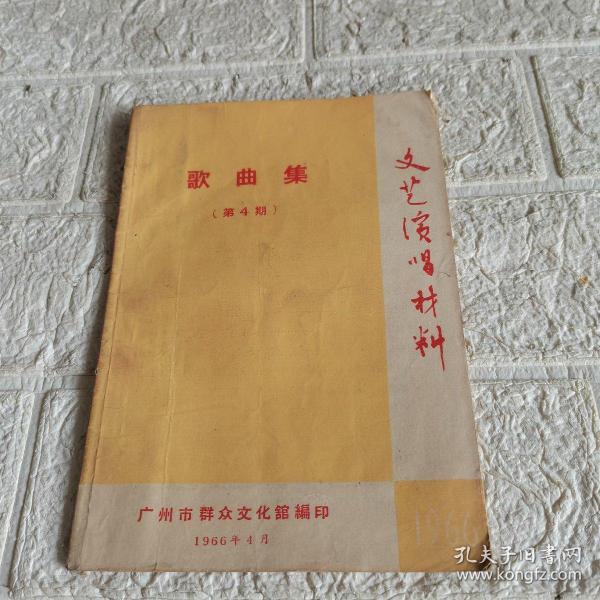 歌曲集
(第4期)
文艺演唱材料
广州市群众文化舘編印
1966年4月
1966
孔夫子旧书网
www.kongfz.com